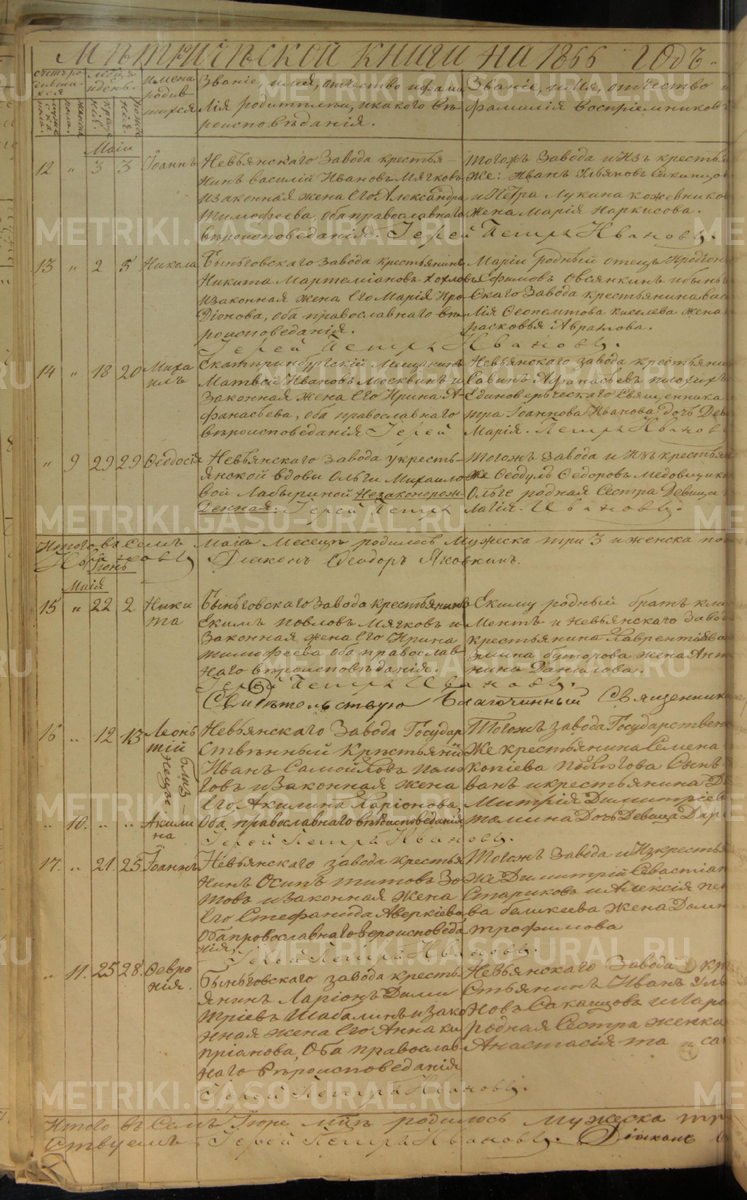 Метрической книги на 1866 годъ.
имена родившихся
Званіе, имя, отчество и фами
лія родителей, и какого вѣ
роисповѣданія.
Званіе, имя, отчество и
фамилія воспріемниковъ
Маій
12 " 3 3 Іоаннъ
Невьянскаго Завода крестья-
нинъ Василій Ивановъ Мягковъ
и законная жена Его Александра
Тимофеева, оба православнаго
вѣроисповѣданія. Іерей Петръ Ивановъ.
Тогожъ Завода и изъ крестья
же: Иванъ
и Петра Лукина Кожевников
жена Марія Наркисова.
13 " 2 5 Никола
Быньговскаго Завода крестьянинъ
Никита Мартемьяновъ Хохловъ
и законная жена Его Марія Про
діонова, оба православнаго вѣ
роисповѣданія.
Іерей Петръ Ивановъ.
Маріи родный отецъ Продіонъ
Ефимовъ Овсянкинъ и Бынь
скаго Завода крестьянина
Киселева жена
Парасковья Абрамова.
14 " 18 20 Миха
илъ
Екатеринбургскій Мещанинъ
Матвей Ивановъ Москвинъ и
Законная жена Его Ирина А-
фанасьева, оба православнаго
вѣроисповѣданія Іерей Петръ Ивановъ
Невьянскаго завода крестьянин
Савинъ Афанасьевъ
Единоверческаго Священника
Іоаннова Иванова дочь Дев
Марія.
" 9 29 29 Феодосія
Невьянскаго Завода у кресть-
янской вдовы Ольги Михаило
вой Лабыриной Незаконорож-
денная. Іерей Петръ Ивановъ.
Тогожъ Завода и изъ крестьян
же Феодулъ Федоровъ Медовщик
Ольге родная Сестра Девица
Итого въ Семъ Маіѣ Месецѣ родилось Мужеска три 3 и женска
Діаконъ Феодоръ Яковкинъ.
Іюнь
Маія
15 " 22 2 Ники
та
Быньговскаго Завода крестьянинъ
Екимъ Повловъ Мягковъ и
Законная жена Его Ирина
Тимофеева оба православ
наго вѣроисповѣданія.
Іерей Петръ Ивановъ.
Екиму родный братъ Кли
ментъ и Невьянскаго Заво
крестьянина Лаврентія
жена Ант
нина Данилова.
Свидѣтельствую Благочинный Священникъ
16 " 12 13 Леонъ
тій
близ-
нецы
Невьянскаго Завода Государ
ственный Крестьянинъ
Иванъ Самойловъ
и Законная жена
Его Акилина Ларіонова,
Оба православнаго вѣроисповѣданія
Іерей Петръ Ивановъ.
Тогожъ завода Государствен
же крестьянина Семена
Сынъ
ванъ и крестьянина
Митрія Димитріев
дочь Девица Дар
" 10 " " Акили
на
17 " 21 25 Іоаннъ
Невьянскаго завода крестья
нинъ Осипъ Титовъ Зо
товъ и законная жена
Его Стефанида Аверкіева
Оба православнаго вероисповеда
нія.
Іерей Петръ Ивановъ.
Тогожъ Завода и Изкресть
же Димитрій Севастіан
Стариковъ и Алексія
жена Домн
Трофимова
" 11 25 28 Февро
нія.
Быньговскаго завода кресть
янинъ Ларіонъ Дими
тріевъ Шабалинъ и зако
нная жена Его Анна Ки
пріанова, Оба православ
наго Вѣроисповеданія
Іерей Петръ Ивановъ.
Невьянскаго Завода кр
стьянинъ Иванъ
новъ
родная Сестра женка
Анастасія
Итого въ Семъ Іюнѣ родилось Мужеска тр
Іерей Петръ Ивановъ. Діаконъ
METRIKI.GASO-URAL.RU